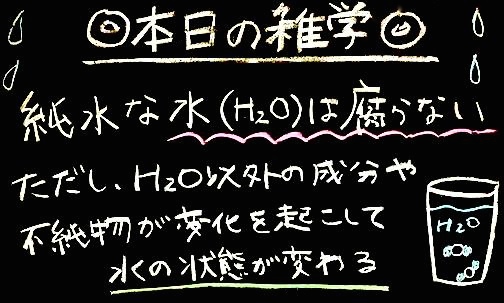 ◎本日の雑学◎
純水な水(H2O)は腐らない
ただし、H2O以外の成分や
不純物が変化を起こして
水の状態が変わる
H2O